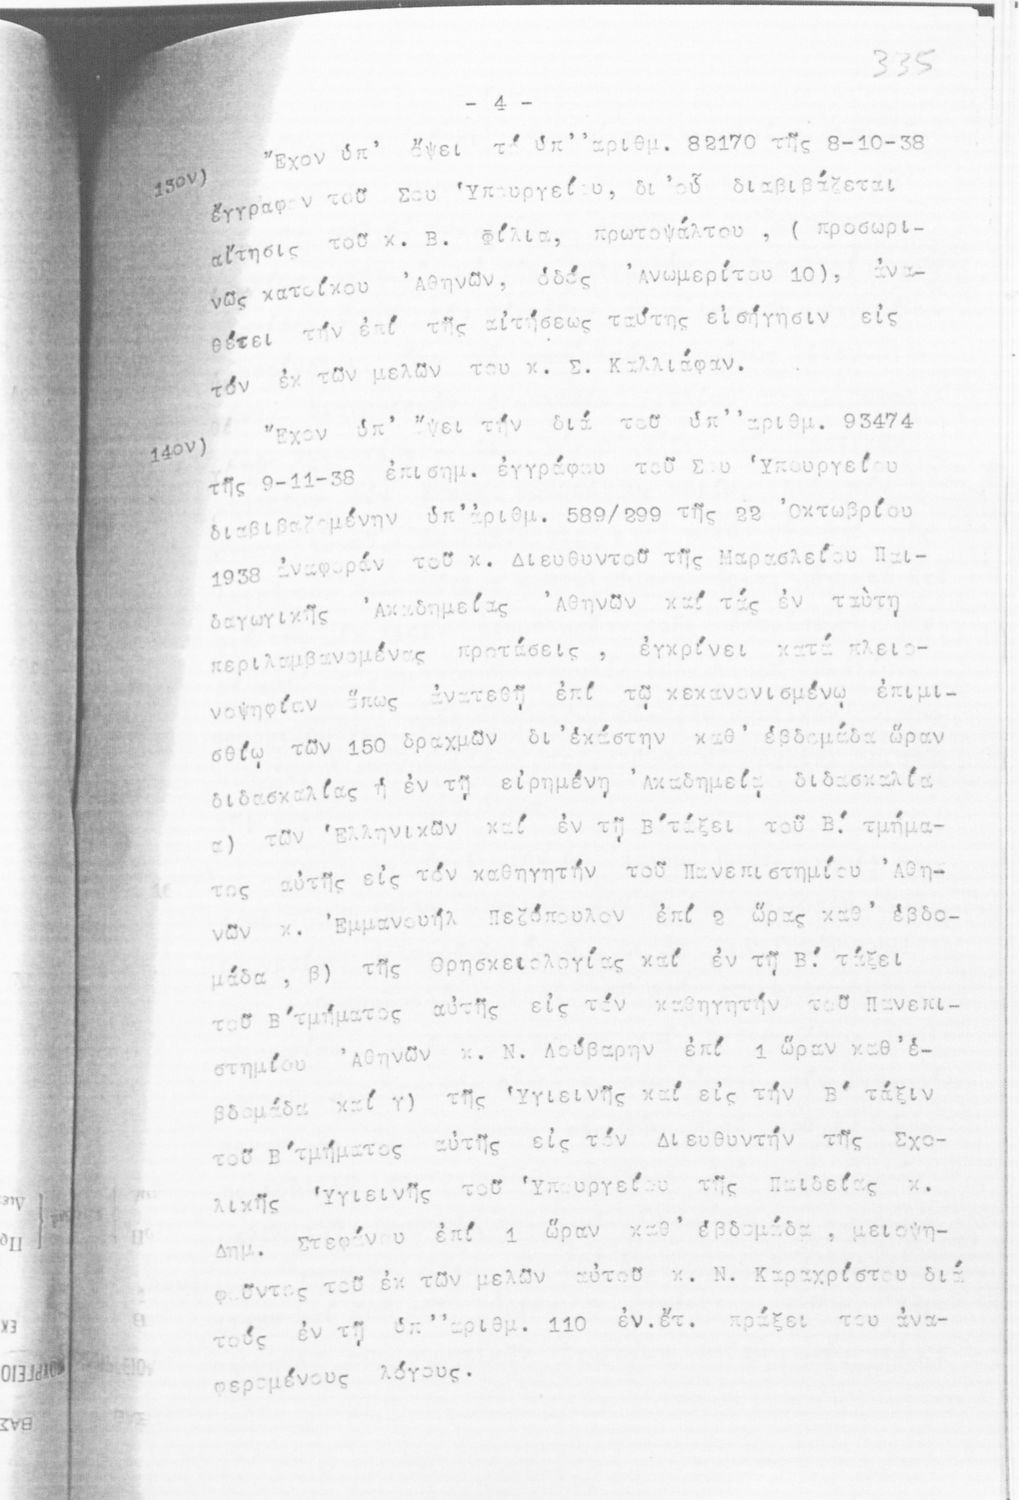 335
- 4 -
13ον) Ἔχον ὑπ' ὄψει τό ὑπ' ἀριθμ. 82170 τῆς 8-10-38
ἔγγραφον τοῦ Σου Ὑπουργείου, δι' οὗ διαβιβάζεται
αἴτησις τοῦ κ. Β. Φίλια, πρωτοψάλτου , ( προσωρι-
νῶς κατοίκου Ἀθηνῶν, ὁδός Ἀνωμερίτου 10), ἀνα-
θέτει τήν ἐπί τῆς αἰτήσεως ταύτης εἰσήγησιν εἰς
τόν ἐκ τῶν μελῶν του κ. Σ. Καλλιάφαν.
14ον) Ἔχον ὑπ' ὄψει τήν διά τοῦ ὑπ' ἀριθμ. 93474
τῆς 9-11-38 ἐπισημ. ἐγγράφου τοῦ Σου Ὑπουργείου
διαβιβαζομένην ὑπ' ἀριθμ. 589/299 τῆς 22 Ὀκτωβρίου
1938 ἀναφοράν τοῦ κ. Διευθυντοῦ τῆς Μαρασλείου Παι-
δαγωγικῆς Ἀκαδημείας Ἀθηνῶν καί τάς ἐν ταὺτῃ
περιλαμβανομένας προτάσεις , ἐγκρίνει κατά πλειο-
νοψηφίαν ὅπως ἀνατεθῇ ἐπί τῷ κεκανονισμένῳ ἐπιμι-
σθίῳ τῶν 150 δραχμῶν δι' ἑκάστην καθ' ἑβδομάδα ὥραν
διδασκαλίας ἡ ἐν τῇ εἰρημένῃ Ἀκαδημείᾳ διδασκαλία
α) τῶν Ἑλληνικῶν καί ἐν τῇ Β΄τάξει τοῦ Β΄. τμήμα-
τος αὐτῆς εἰς τόν καθηγητήν τοῦ Πανεπιστημίου Ἀθη-
νῶν κ. Ἐμμανουήλ Πεζόπουλον ἐπί 2 ὥρας καθ' ἑβδο-
μάδα , β) τῆς Θρησκειολογίας καί ἐν τῇ Β΄. τάξει
τοῦ Β΄τμήματος αὐτῆς εἰς τόν καθηγητήν τοῦ Πανεπι-
στημίου Ἀθηνῶν κ. Ν. Λούβαρην ἐπί 1 ὥραν καθ' ἑ-
βδομάδα καί γ) τῆς Ὑγιεινῆς καί εἰς τήν Β΄ τάξιν
τοῦ Β΄τμήματος αὐτῆς εἰς τόν Διευθυντήν τῆς Σχο-
λικῆς Ὑγιεινῆς τοῦ Ὑπουργείου τῆς Παιδείας κ.
Δημ. Στεφάνου ἐπί 1 ὥραν καθ' ἑβδομάδα , μειοψη-
φοῦντος τοῦ ἐκ τῶν μελῶν αὐτοῦ κ. Ν. Καραχρίστου διά
τούς ἐν τῇ ὑπ' ἀριθμ. 110 ἐν.ἔτ. πράξει του ἀνα-
φερομένους λόγους.